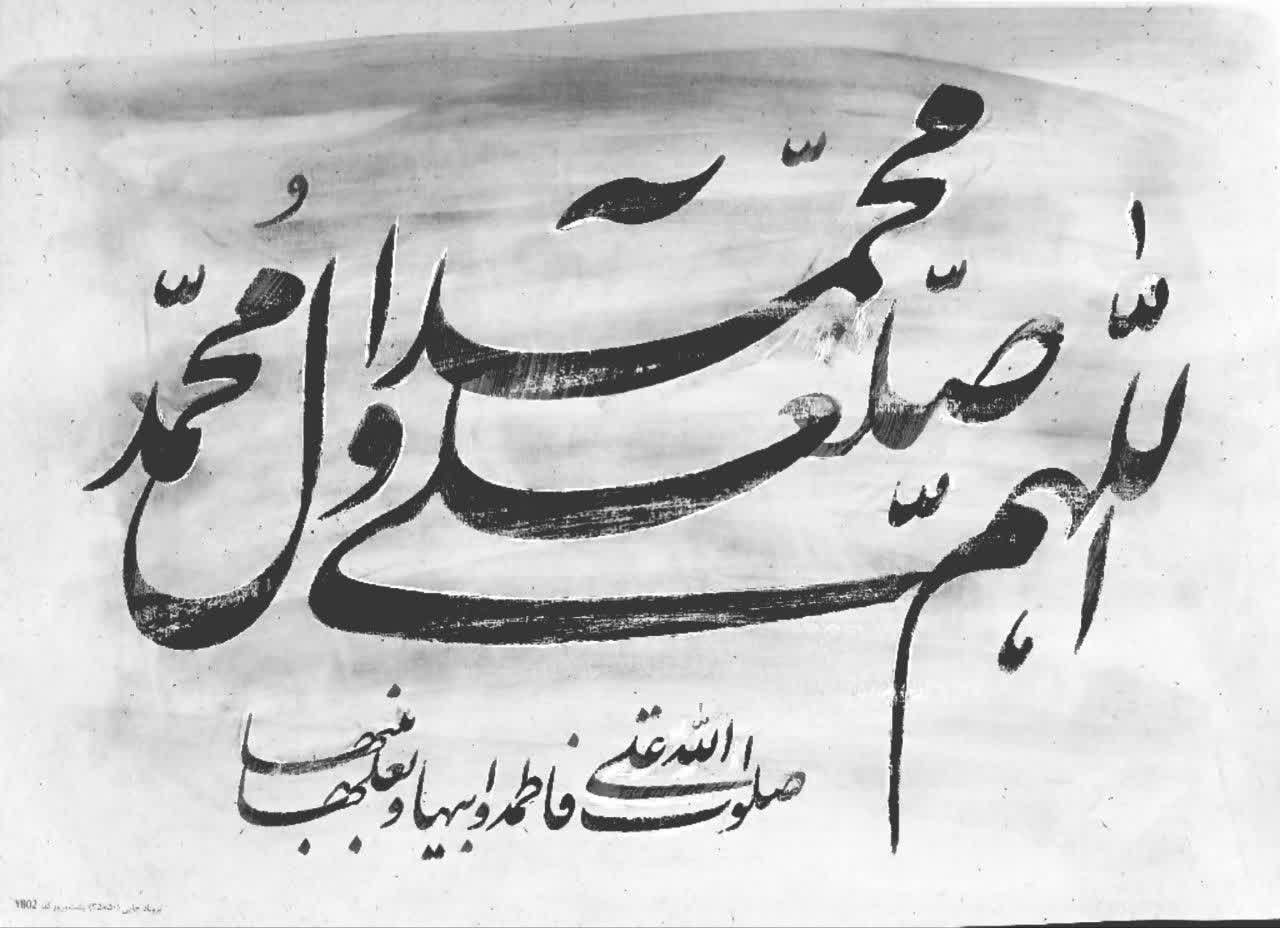 اللّٰهمّ صلّ علی محمّد و آل محمّد
صلوات الله علی فاطمه و ابیها و بعلها و بنیها